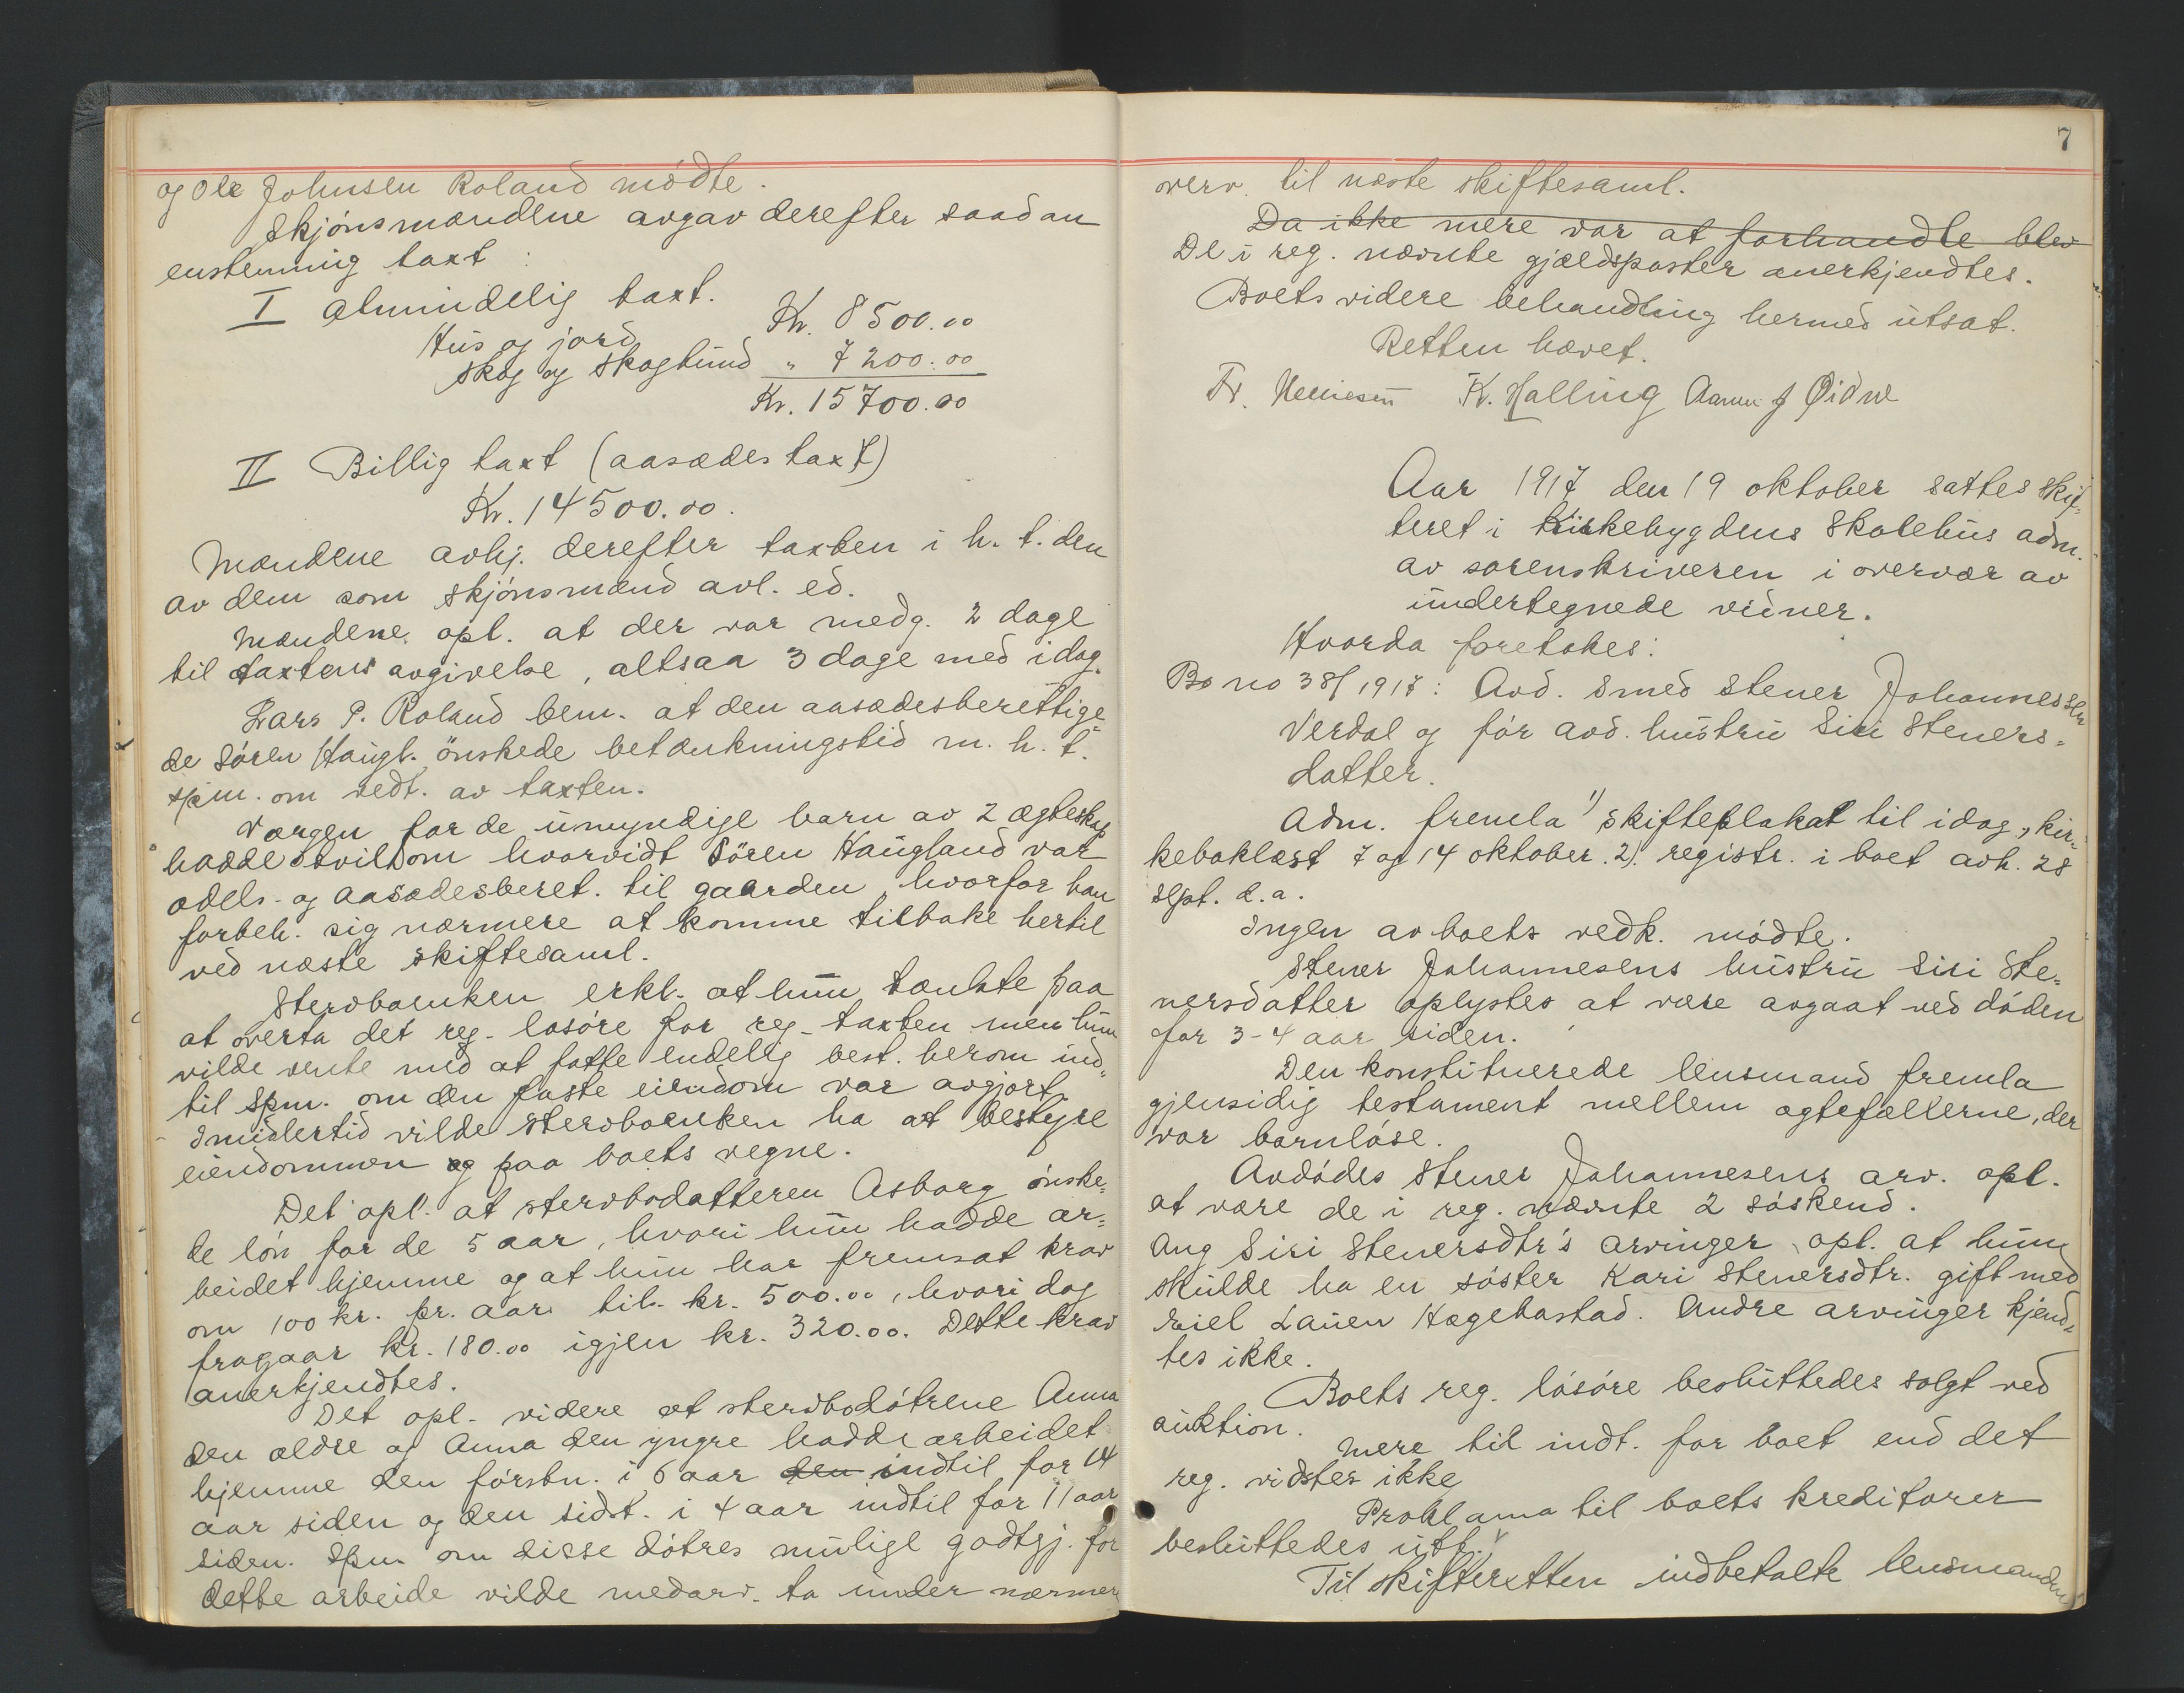 og Ole Johnsen Roland mødte.
Skjønsmændene avgav derefter saadan
enstemmig taxt:
I almindelig taxt.
Hus og jord Kr. 8500.00
Skog og skogbund " 7200.00
Kr. 15700.00
II Billig taxt (aasædestaxt)
Kr. 14500.00.
Mændene avhj. derefter taxten i h. t. den
av dem som skjønsmænd avl. ed.
Mændene opl. at der var medg. 2 dage
til taxtens avgivelse, altsaa 3 dage med idag.
Lars P. Roland bem. at den aasædesberettige-
de Søren Haugl. ønskede betænkningstid m. h. t.
spm. om vedt. av taxten.
Værgen for de umyndige barn av 2 ægteskap
hadde tvil om hvorvidt Søren Haugland var
odels- og aasædesberet. til gaarden, hvorfor han
forbeh. sig nærmere at komme tilbake hertil
ved næste skiftesaml.
Stervboenken erkl. at hun tænkte paa
at overta det reg. løsøre for reg. taxten men hun
vilde vente med at fatte endelig best. herom ind-
til spm. om den faste eiendom var avgjort.
Imidlertid vilde stervboenken ha at bestyre
eiendommen og paa boets vegne.
Det opl. at stervbodatteren Asborg ønske-
de løn for de 5 aar, hvori hun hadde ar-
beidet hjemme og at hun har fremsat krav
om 100 kr. pr. aar. til. kr. 500.00, hvori dog
fragaar kr. 180.00 igjen kr. 320.00. Dette krav
anerkjendtes.
Det opl. videre at stervbodøtrene Anna
den ældre og Anna den yngre hadde arbeidet
hjemme den førstn. i 6 aar den indtil for 14
aar siden og den sidst. i 4 aar indtil for 11 aar
siden. Spm. om disse døtres mulige godtgj. for
dette arbeide vilde medarv. ta under nærmere
7
overv. til næste skiftesaml.
Da ikke mere var at forhandle blev
De i reg. nævnte gjældsposter anerkjendtes.
Boets videre behandling hermed utsat.
Retten hævet.
Fr. K. Halling J Øidne
Aar 1917 den 19 oktober sattes skif-
teret i Kirkebygdens Skolehus adm.
av sorenskriveren i overvær av
undertegnede vidner.
Hvorda foretokes:
Bo no 38/1917: Avd. smed Stener Johannessen
Verdal og før avd. hustru Siri Steners-
datter.
Adm. fremla 1) skifteplakat til idag, kir-
kebaklæst 7 og 14 oktober. 2) registr. i boet avh. 28
sept. d. a.
Ingen av boets vedk. mødte.
Stener Johannesens hustru Siri Ste-
nersdatter oplystes at være avgaat ved døden
for 3-4 aar siden.
Den konstituerede lensmand fremla
gjensidig testament mellem ægtefællerne, der
var barnløse.
Avdødes Stener Johannesens arv. opl.
at være de i reg. nævnte 2 søskend.
Ang Siri Stenersdtr's arvinger opl. at hun
skulde ha en søster Kari Stenersdtr. gift med
Eiel Lauen Hægebostad. Andre arvinger kjend-
tes ikke.
Boets reg. løsøre besluttedes solgt ved
auktion.
Mere til indt. for boet end det
reg. vidstes ikke
Proklama til boets kreditorer
besluttedes utst.
Til skifteretten indbetalte lensmanden